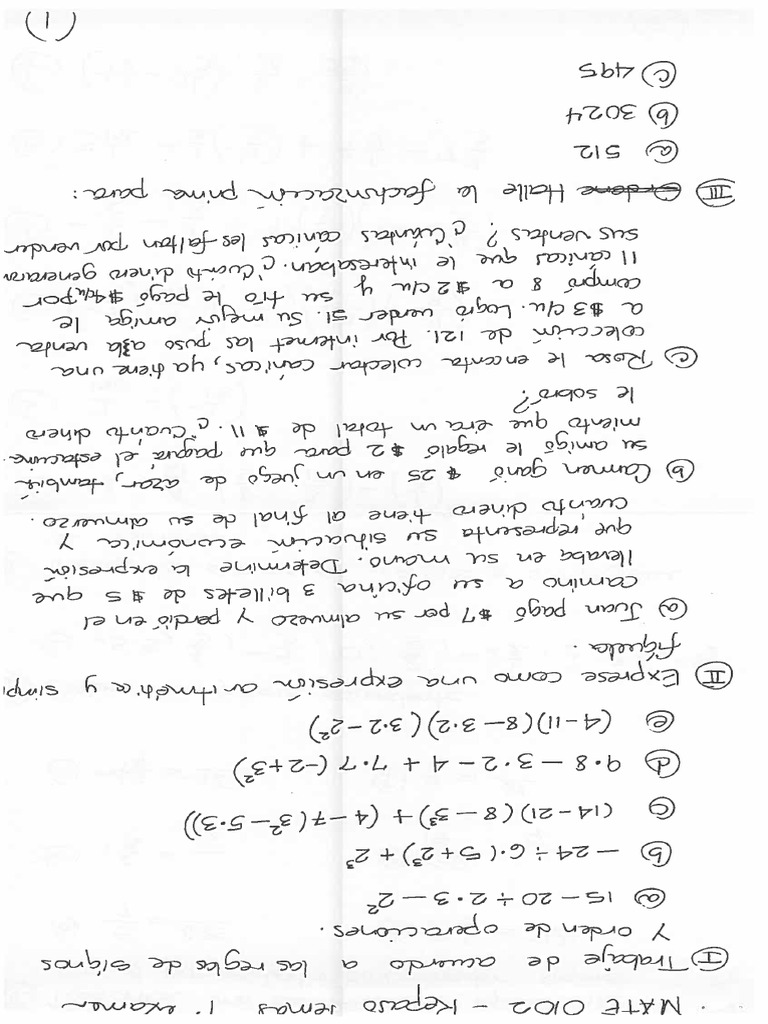 MATE 0102 - Repaso temas 1er examen
I Trabaje de acuerdo a las reglas de signos
y orden de operaciones.
a 15 - 20 ÷ 2 · 3 - 2²
b - 24 ÷ 6 · (5 + 2³) + 2³
c (14 - 21)(8 - 3³) + (4 - 7(3² - 5 · 3))
d 9 · 8 - 3 · 2 - 4 + 7 · 7 (-2 + 3²)
e (4 - 11)(8 - 3 · 2)(3 · 2 - 2²)
II Exprese como una expresión aritmética y simpl
fíquela.
a Juan pagó $7 por su almuerzo y perdió en el
camino a su oficina 3 billetes de $5 que
llevaba en su mano. Determine la expresión
que representa su situación económica y
cuánto dinero tiene al final de su almuerzo.
b Carmen ganó $25 en un juego de azar, también
su amigo le regaló $2 para que pagara el estaciona-
miento que era un total de $11. ¿Cuánto dinero
le sobró?
c Rosa le encanta colectar canicas, ya tiene una
colección de 121. Por internet las puso a la venta
a $3 c/u. Logró vender 51. Su mejor amiga le
compró 8 a $2 c/u y su tío le pagó $4/u por
11 canicas que le interesaban. ¿Cuánto dinero generaron
sus ventas? ¿Cuántas canicas les faltan por vender
III Halle la factorización prima para:
a 512
b 3024
c 495
(1)